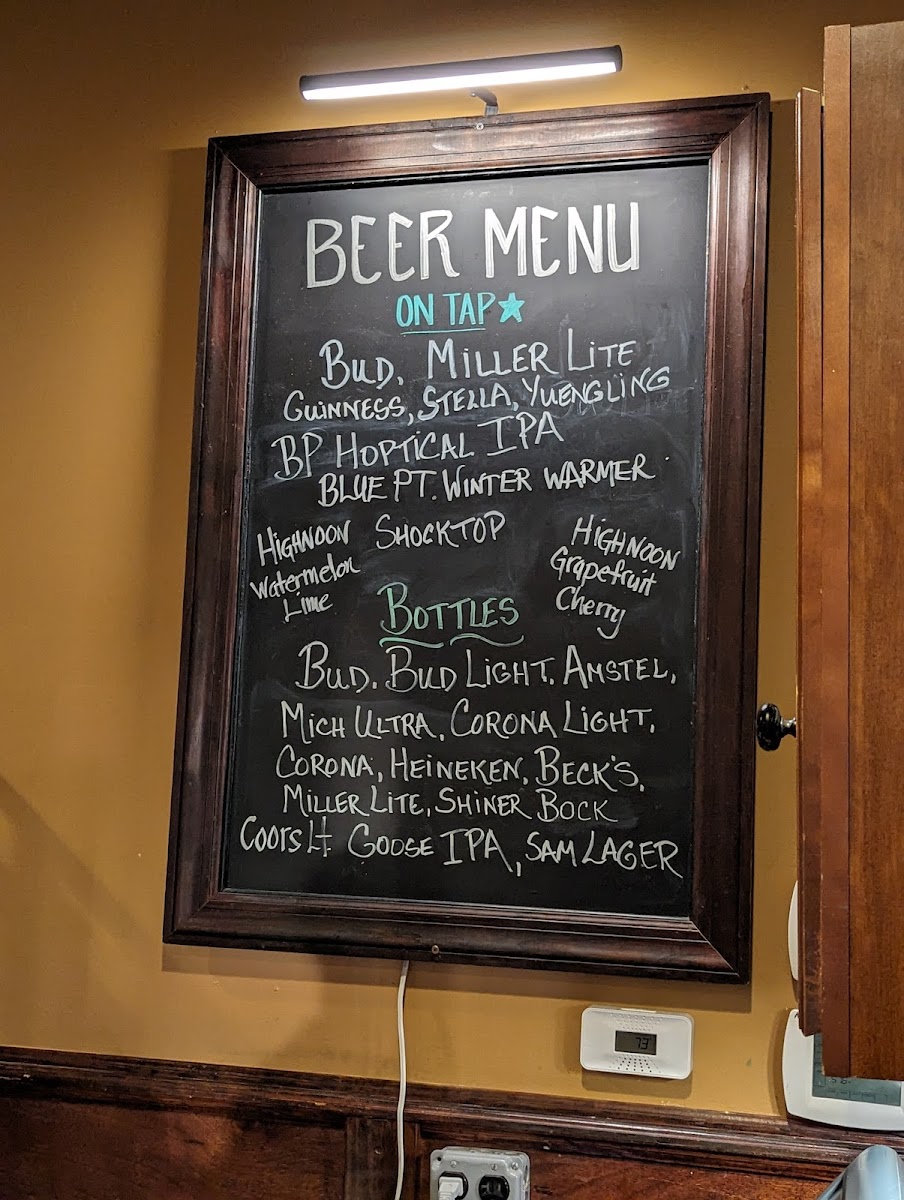 BEER MENU
ON TAP
BUD. MILLER LITE
GUINNESS, STELLA, YUENGLING
BP HOPTICAL IPA
BLUE PT. WINTER WARMER
HIGHNOON
Watermelon
Lime
SHOCKTOP
HIGHNOON
Grapefruit
Cherry
BOTTLES
BUD. BUD LIGHT. AMSTEL,
MICH ULTRA, CORONA LIGHT.
CORONA, HEINEKEN, BECK'S.
MILLER LITE, SHINER BOCK
COORS LT GOOSE IPA, SAM LAGER
73